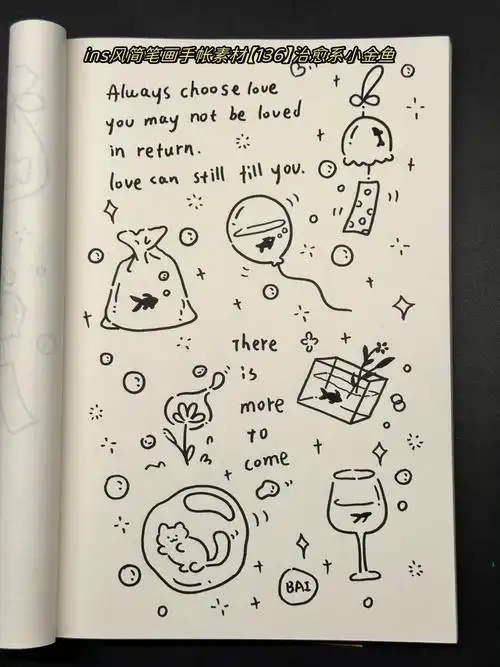 ins风简笔画手帐素材【136】治愈系小金鱼
Always choose love
you may not be loved
in return.
love can still fill you.
There
is
more
To
come
BAI